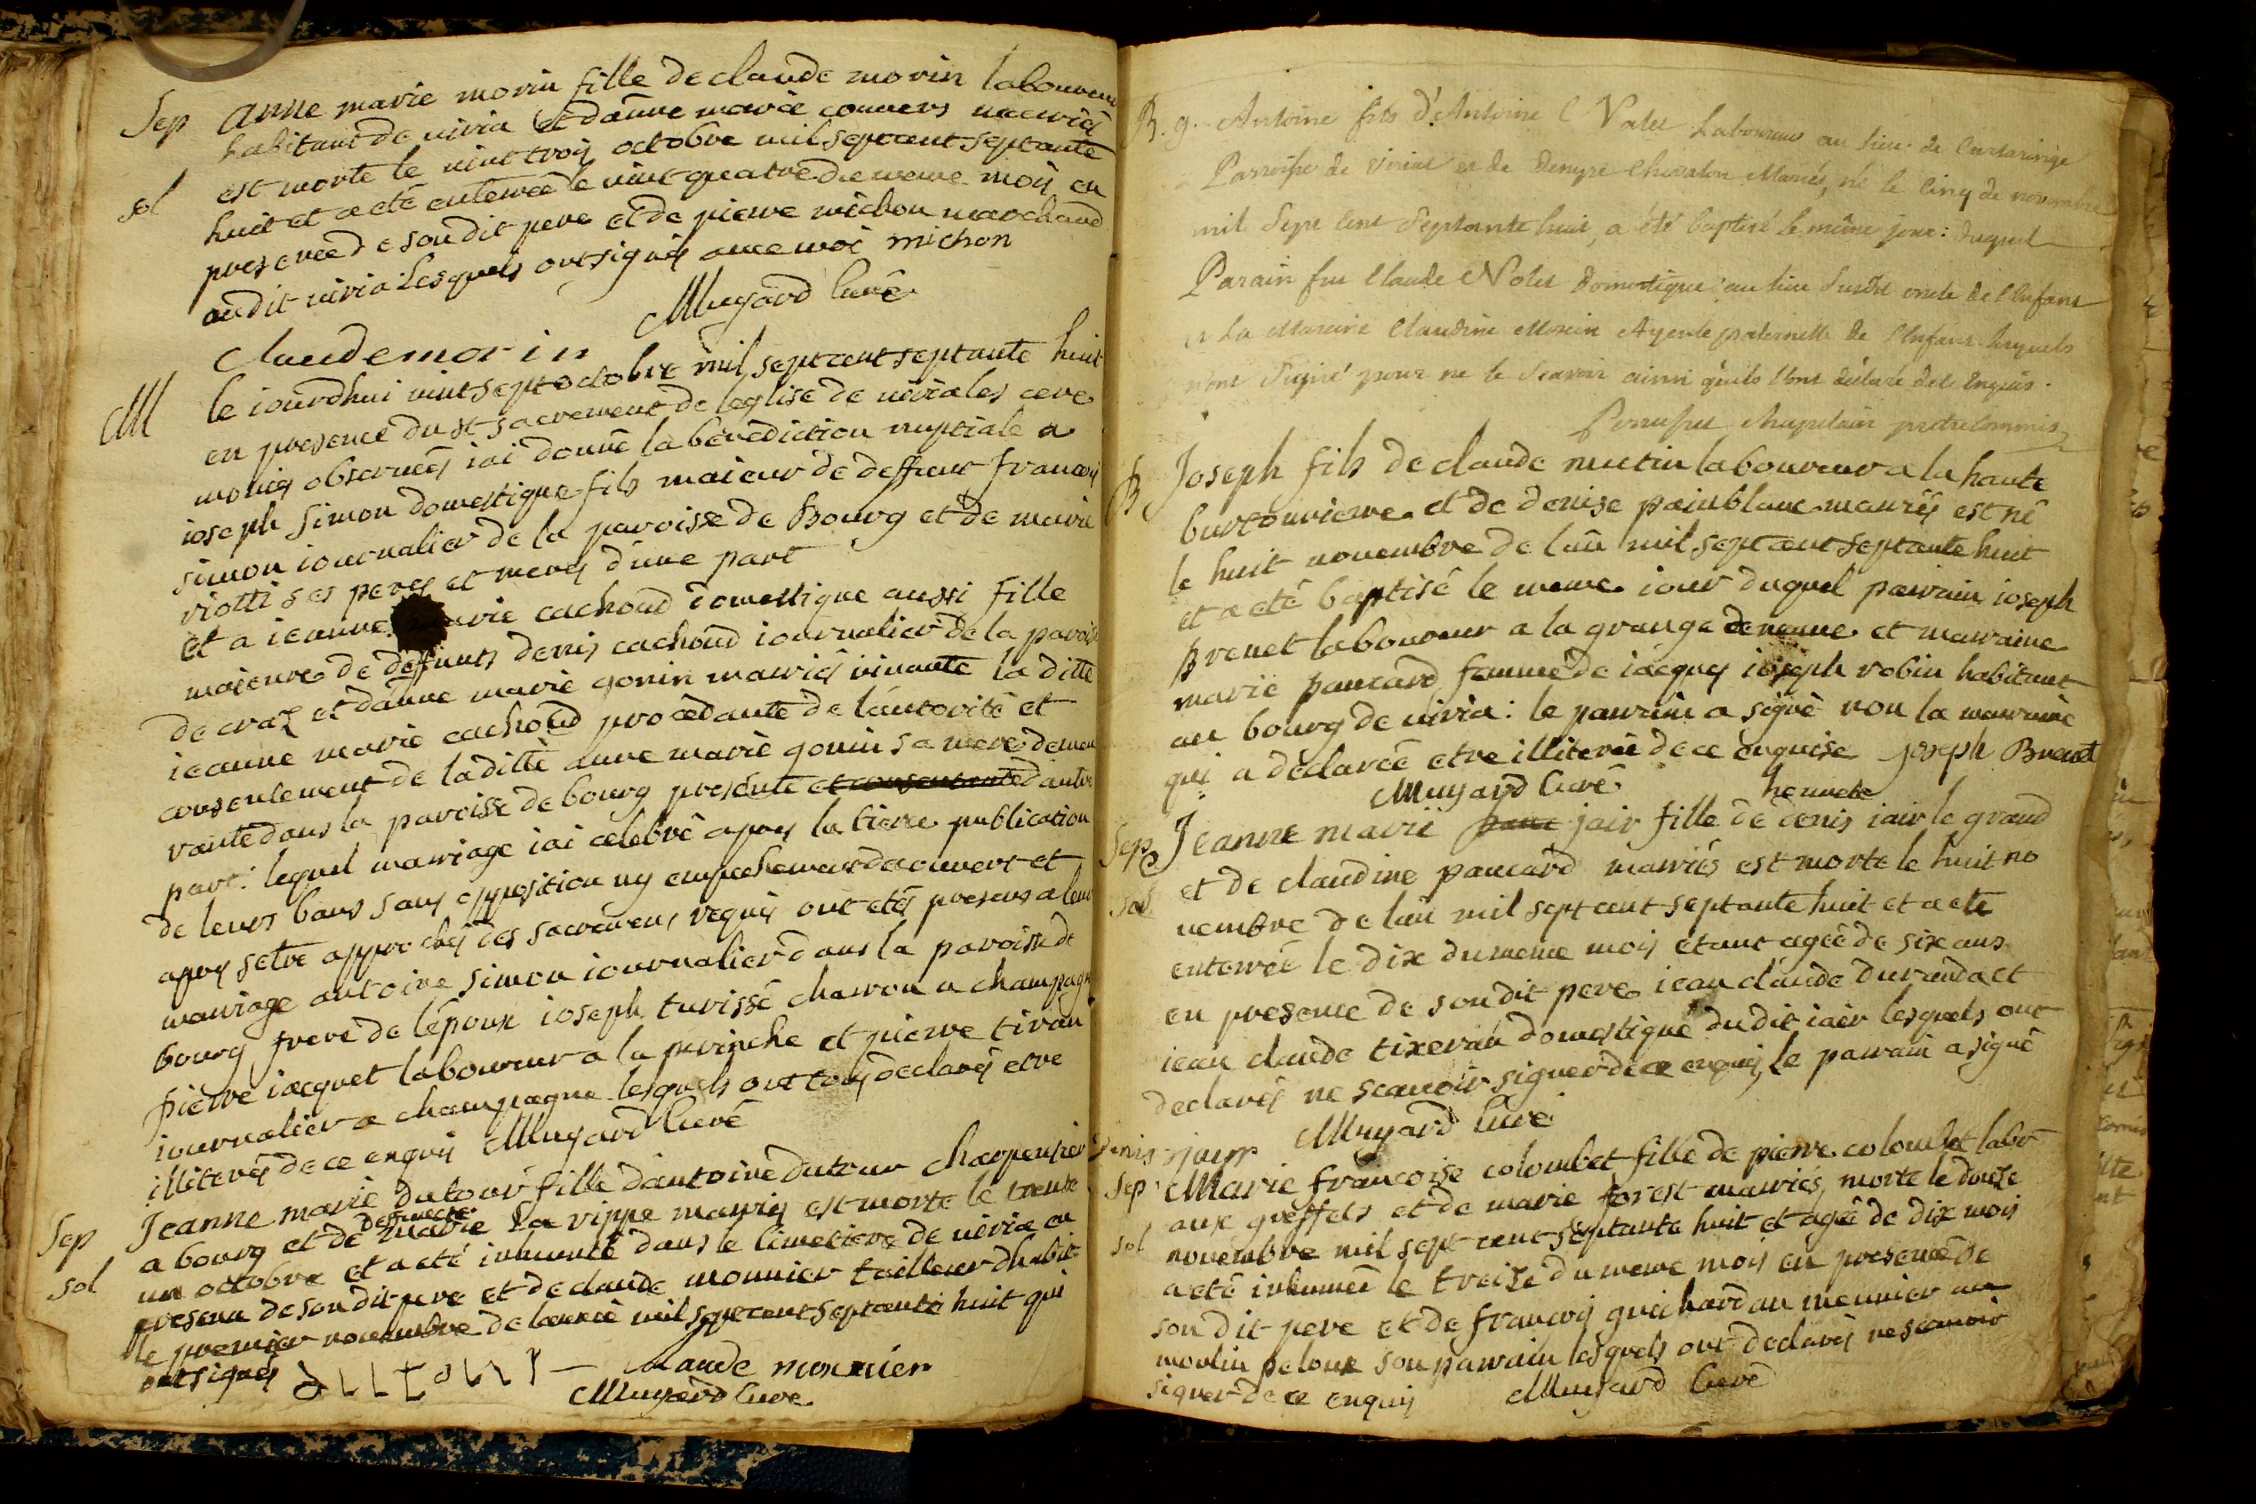 Sep anne marie morin fille de claude morin laboureur
habitant de viria et d'anne marie convers mariés
est morte le vint trois octobre mil sept cent septante
sol huit et a eté enterrée le vint quatre du meme mois en
presence de son dit pere et de pierre michon marchand
au dit viria lesquels ont signés avec moi michon
Mugard curé
Claude morin
M le iourdhui vint sept octobre mil sept cent septante huit
en presence du st sacrement de leglise de viria les cere
monies observées iai donné la bénédiction nuptiale a
ioseph simon domestique fils maieur de deffunt francois
simon iournalier de la paroisse de Bourg et de marie
viotti ses peres et meres d'une part
et a ieanne marie cachoud domestique aussi fille
maieure de deffunts denis cachoud iournalier de la paroisse
de craz et d'anne marie gonin mariés vivante la ditte
ieanne marie cachoud procedante de l'autorité et
consentement de la ditte anne marie gonin sa mere demeu
rante dans la paroisse de bourg presente et consentante d'autre
part: lequel mariage iai celebré apres la tierce publication
de leurs bans sans opposition ny empechement decouvert et
apres setre approchés des sacremens requis ont etés presens a leur
mariage antoine simon iournalier dans la paroisse de
bourg frere de lépoux ioseph turissé charron a champagne
pierre iacquet laboureur a la perinche et pierre tiran
iournalier a champagne lesquels ont tous declarés etre
illiterés de ce enquis Mugard Curé
Sep Jeanne marie dutour fille d'antoine dutour charpentier
deffuncte
a bourg et de marie la rippe mariés est morte le trente
sol un octobre et a eté inhumée dans le cimetiere de viria en
presence de son dit pere et de claude monnier tailleur d'habit
le premier novembre de lannée mil sept cent septante huit qui
ont signés
claude monnier
Mugard Curé
B. g. Antoine fils d'Antoine Nolet Laboureur au lieu de
Parroisse de viriat et de Denyse Chevalon Mariés, né le cinq de novembre
mil Sept Cent Septante huit, a été baptisé le même jour: duquel
Parain fut Claude Nolet Domestique au lieu susdit oncle de l'Enfant
et La Maraine Claudine Morin Ayeule paternelle de l'Enfant lesquels
n'ont Signé pour ne le Scavoir ainsi qu'ils l'ont déclaré de ce Enquis.
chapelain pretre commis
B Joseph fils de claude mutin laboureur a la haute
burtonniere et de denise painblanc mariés est né
le huit novembre de lan mil sept cent septante huit
et a eté baptisé le meme iour duquel parrain ioseph
brenet laboureur a la grange et marraine
marie paucard femme de iacques ioseph robin habitant
au bourg de viria: le parrain a signé non la marraine
qui a déclarée etre illiterée de ce enquise joseph Brenet
Mugard Curé
Sep Jeanne marie jair fille de denis iair le grand
et de claudine paucard mariés est morte le huit no
sol vembre de lan mil sept cent septante huit et a eté
enterrée le dix du meme mois étant agée de six ans
en presence de son dit pere iean claude durand et
iean claude tixeran domestique du dit iair lesquels ont
declarés ne scavoir signer de ce enquis, le parrain a signé
denis jair Mugard Curé
Sep Marie francoise colombet fille de pierre colombet labo
aux greffets et de marie forest mariés, morte le douze
sol novembre mil sept cent septante huit et agée de dix mois
a eté inhumée le treize du meme mois en presence de
son dit pere et de francois guichardan meunier au
moulin peloux son parrain lesquels ont declarés ne scavoir
signer de ce enquis Mugard Curé